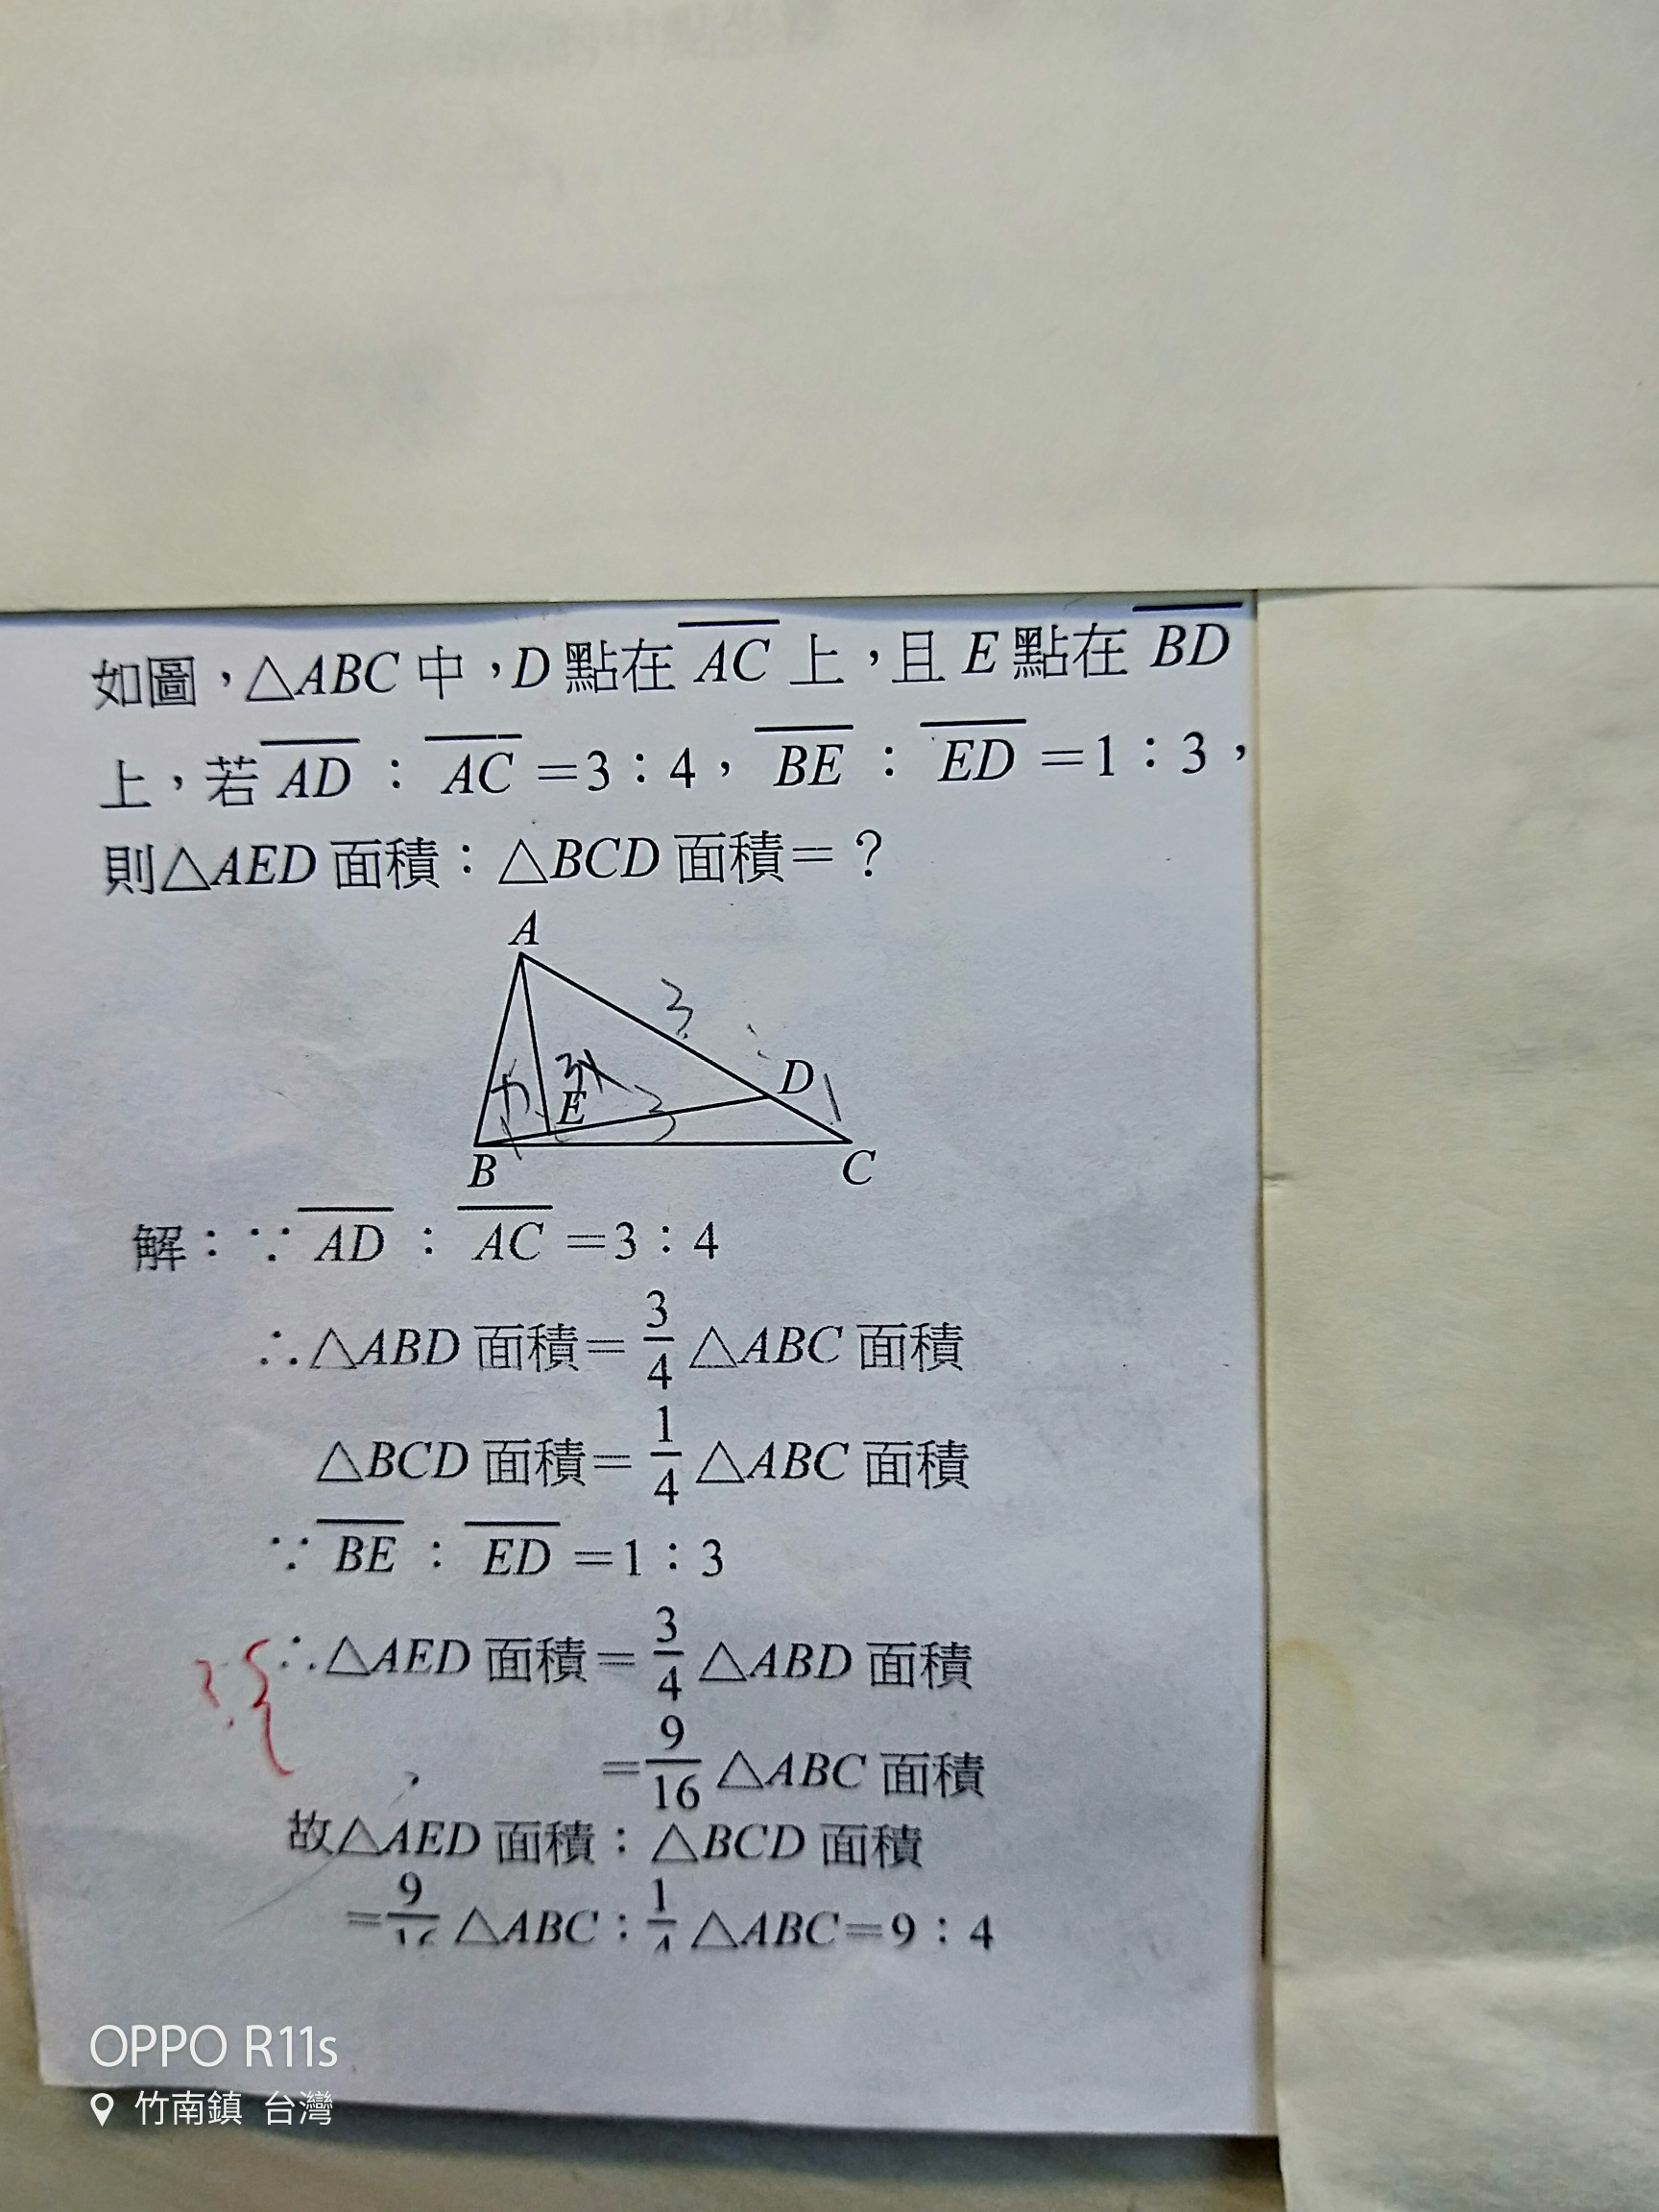 如圖，△ABC 中，D 點在 AC 上，且 E 點在 BD
上，若 AD：AC＝3：4，BE：ED＝1：3，
則△AED 面積：△BCD 面積＝？
A
3
D
1
3
E
B
C
解：∵ AD：AC＝3：4
∴△ABD 面積＝3/4 △ABC 面積
△BCD 面積＝1/4 △ABC 面積
∵ BE：ED＝1：3
∴△AED 面積＝3/4 △ABD 面積
？
＝9/16 △ABC 面積
故△AED 面積：△BCD 面積
＝9/16 △ABC：1/4 △ABC＝9：4
OPPO R11s
竹南鎮 台灣